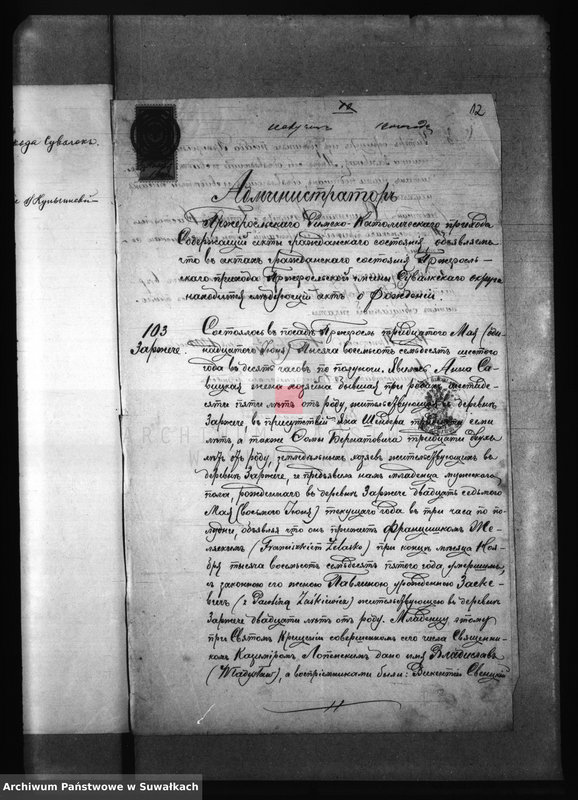 хода Сувалокъ.
12
Администраторъ
Пржерослскаго Римско-Католическаго прихода
Содержащій акты гражданскаго состоянія объявляетъ
что въ актахъ гражданскаго состоянія Пржеросль-
скаго прихода Пржерослской гмины Сувалкскаго округа
находится слѣдующій актъ о рожденіи.
103
Заржече.
Состоялось въ посадѣ Пржеросль тридцатого Мая (оди-
надцатого Іюня) тысяча восемьсотъ семьдесятъ шестого
года въ десять часовъ по полуночи. Явилась Анна Са-
жена хозяина бывшая при родахъ шестиде-
сяти пяти лѣтъ отъ роду, жительствующая въ деревнѣ
Заржече, въ присутствіи Яна Шейбера тридцати семи
лѣтъ, а также Бернатовича тридцати двухъ
лѣтъ отъ роду, земледѣльцевъ хозяевъ жительствующихъ въ
деревнѣ Заржече, и предъявила намъ младенца мужескаго
пола, рожденнаго въ деревнѣ Заржече двадцать седьмого
Мая (восьмого Іюня) текущаго года въ три часа по по-
лудни, объявляя что онъ прижитъ Францишкомъ Же-
ляскемъ (Franciszkiem Żelasko) при концѣ мѣсяца Ноя-
бря тысяча восемьсотъ семьдесятъ пятого года умершимъ,
съ законною его женою Павлиною урожденною Заске-
вичъ (z Pauliną Zaśkiewicz) жительствующею въ деревнѣ
Заржече двадцати лѣтъ отъ роду. Младенцу этому
при Святомъ Крещеніи совершенномъ сего числа Священни-
комъ Казиміромъ Лопенскимъ дано имя Владиславъ
(Władysław), а воспріемниками были: Викентій Свенцкій
Archiwum Państwowe w Suwałkach